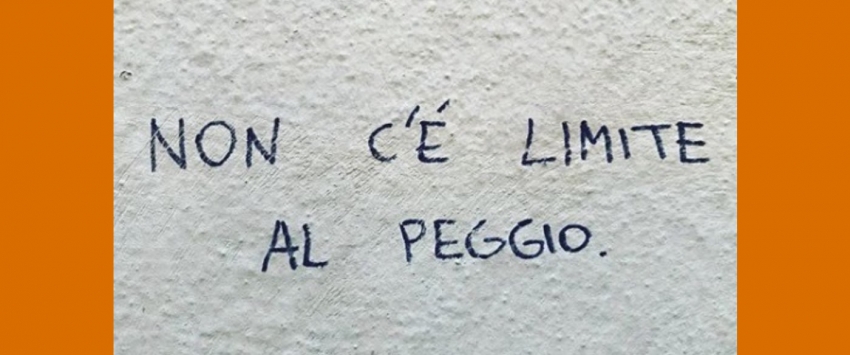 NON C'É LIMITE
AL PEGGIO.